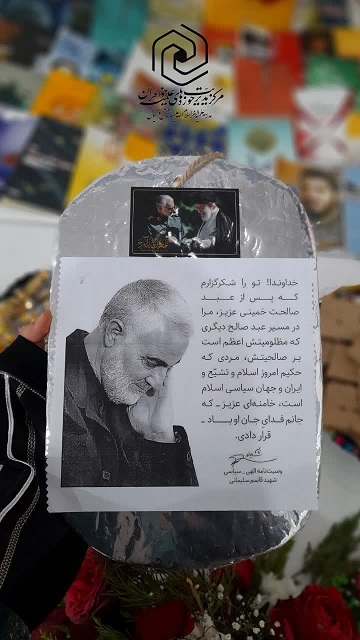 مرکز مدیریت حوزه‌های علمیه خواهران
خداوندا! تو را شکرگزارم
که پس از عبد
صالحت خمینی عزیز، مرا
در مسیر عبد صالح دیگری
که مظلومیتش اعظم است
بر صالحیتش، مردی که
حکیم امروز اسلام و تشیّع و
ایران و جهان سیاسی اسلام
است، خامنه‌ای عزیز ـ که
جانم فدای جان او باد ـ
قرار دادی.
وصیت‌نامه الهی_سیاسی
شهید قاسم سلیمانی